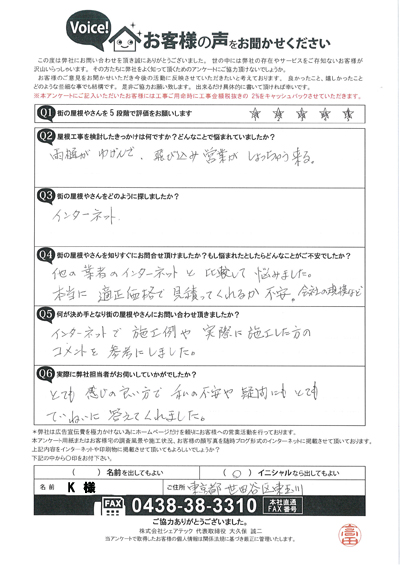 Voice!
お客様の声をお聞かせください
この度は弊社にお問い合わせを頂き誠にありがとうございました。世の中には弊社の存在やサービスをご存知ないお客様が
沢山いらっしゃいます。その方たちに弊社をよく知って頂くためのアンケートにご協力頂けないでしょうか。
お客様のご意見をお聞かせいただき今後の活動に反映させていただきたいと考えております。良かったこと、嬉しかったこと
どのような些細な事でも結構です。是非ご協力お願い致します。出来るだけ具体的に書いて頂ければ幸いです。
※本アンケートにご記入いただいたお客様には工事ご用命時に工事金額税抜きの 2%をキャッシュバックさせていただきます。
Q1 街の屋根やさんを5段階で評価をお願いします ★ ★ ★ ★ ★
Q2 屋根工事を検討したきっかけは何ですか?どんなことで悩まれていましたか?
雨樋が ゆがんで、飛び込み営業が しょっちゅう来る。
Q3 街の屋根やさんをどのように探しましたか?
インターネット
Q4 街の屋根やさんを知りすぐにお問合せ頂けましたか?もし悩まれたとしたらどんなことがご不安でしたか?
他の業者のインターネットと比較して悩みました。
本当に適正価格で見積ってくれるか不安。会社の規模など
Q5 何が決め手となり街の屋根やさんにお問い合わせ頂きましたか?
インターネットで施工例や実際に施工した方の
コメントを参考にしました。
Q6 実際に弊社担当者がお伺いしていかがでしたか?
とても感じの良い方で私の不安や疑問にもとても
ていねいに答えてくれました。
*弊社は広告宣伝費を極力かけない為にホームページだけを頼りにお客様への営業活動を行っております。
本アンケート用紙またはお客様宅の調査風景や施工状況、お客様の顔写真を随時ブログ形式のインターネットに掲載させて頂いております。
上記内容をインターネットや印刷物に掲載させて頂いてもよろしいでしょうか?
下記の中から〇印をお付下さい。
( ) 名前を出してもよい ( ○ ) イニシャルなら出してもよい
名前 K 様 ご住所 東京都世田谷区玉川
FAX 0438-38-3310 本社直通 FAX番号
ご協力ありがとうございました。
株式会社シェアテック 代表取締役 大久保 誠二
当アンケートで取得したお客様の個人情報は関係法規に基づき厳正に管理いたします。